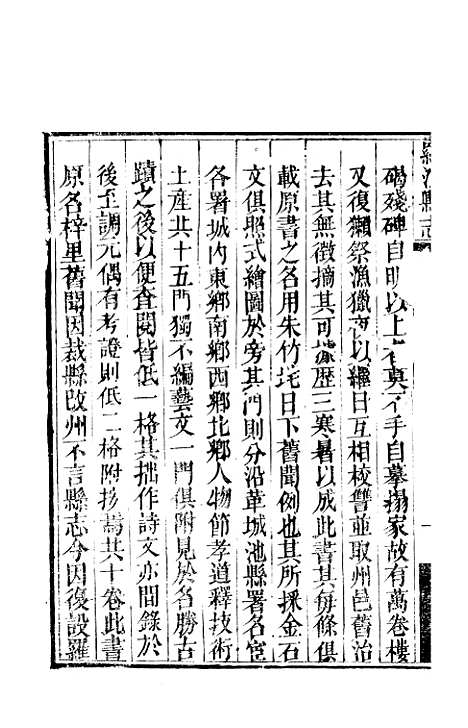 碣殘碑自明以上者莫不手自摹搨家故有萬卷樓
又復獺祭漁獵夜以繼日互相校讐並取州邑舊治
去其無徵摘其可據歷三寒暑以成此書其每條俱
載原書之名用朱竹垞日下舊聞例也其所採金石
文俱照式繪圖於旁其門則分沿革城池縣署名宦
各署城內東鄉南鄉西鄉北鄉人物節孝道釋技術
土產共十五門獨不編藝文一門俱附見於名勝古
蹟之後以便查閱皆低一格其拙作詩文亦間錄於
後至調元偶有考證則低二格附抄焉共十卷此書
原名梓里舊聞因裁縣改州不言縣志今因復設羅